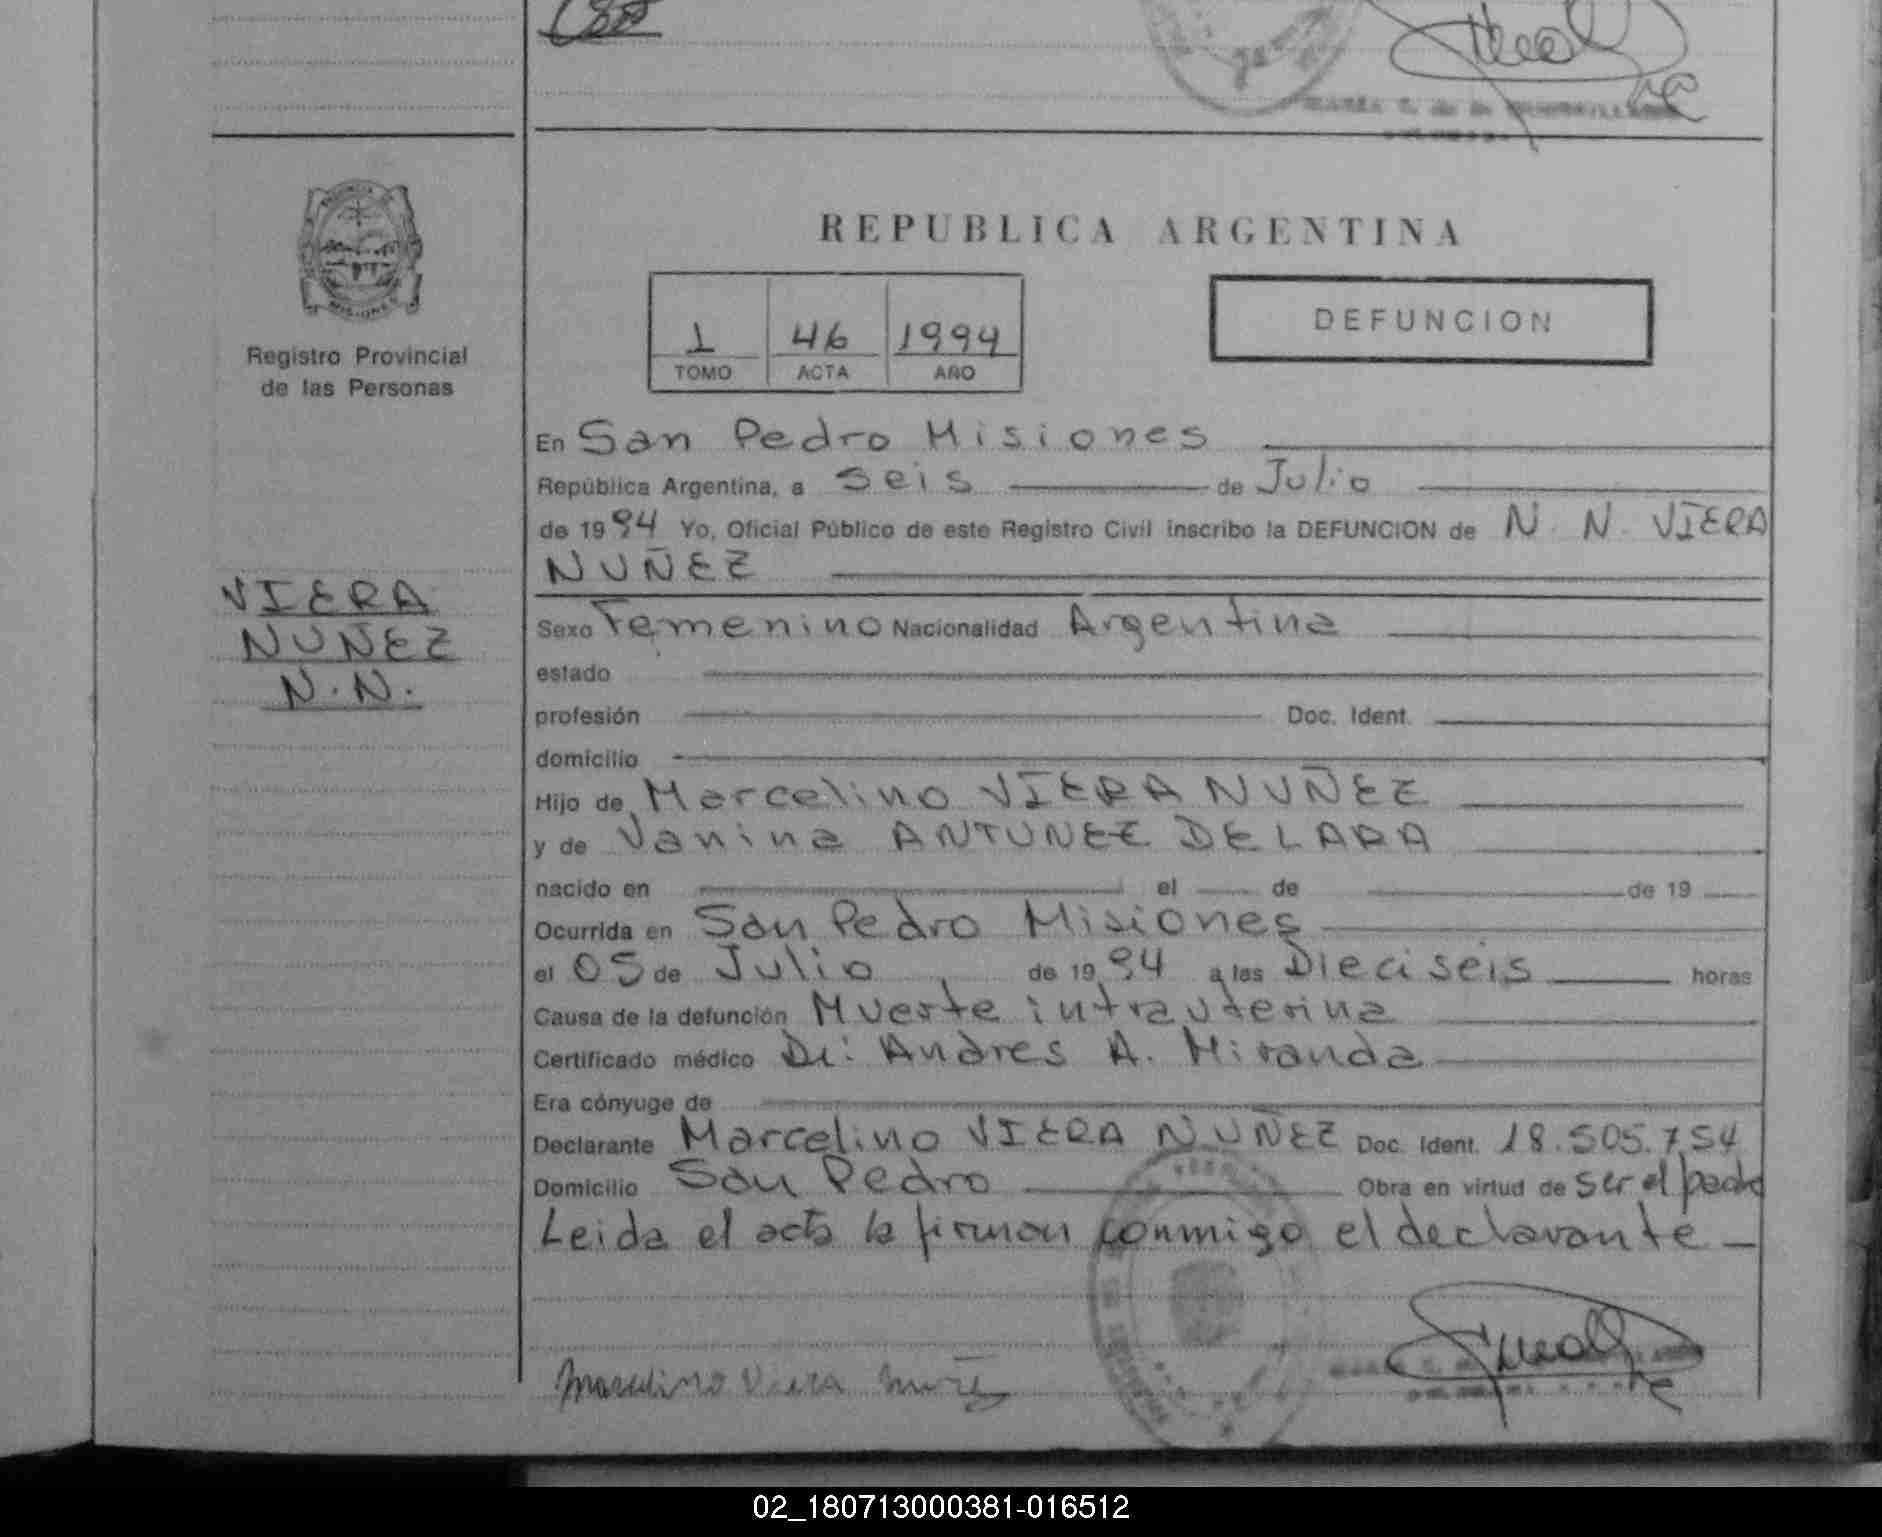 REPUBLICA ARGENTINA
MISIONES
Registro Provincial
de las Personas
1 46 1994
TOMO ACTA AÑO
DEFUNCION
VIERA
NUÑEZ
N.N.
En San Pedro Misiones
República Argentina, a Seis de Julio
de 1994 Yo, Oficial Público de este Registro Civil inscribo la DEFUNCION de N. N. VIERA
NUÑEZ
Sexo Femenino Nacionalidad Argentina
estado
profesión Doc. Ident.
domicilio
Hijo de Marcelino VIERA NUÑEZ
y de Vanina ANTUNEZ DE LARA
nacido en el de de 19
Ocurrida en San Pedro Misiones
el 05 de Julio de 1994 a las Dieciseis horas
Causa de la defunción Muerte intrauterina
Certificado médico Dr: Andres A. Miranda
Era cónyuge de
Declarante Marcelino VIERA NUÑEZ Doc. Ident. 18.505.754
Domicilio San Pedro Obra en virtud de ser el padre
Leida el acta la firman conmigo el declarante
Marcelino Viera Nuñez
02_180713000381-016512